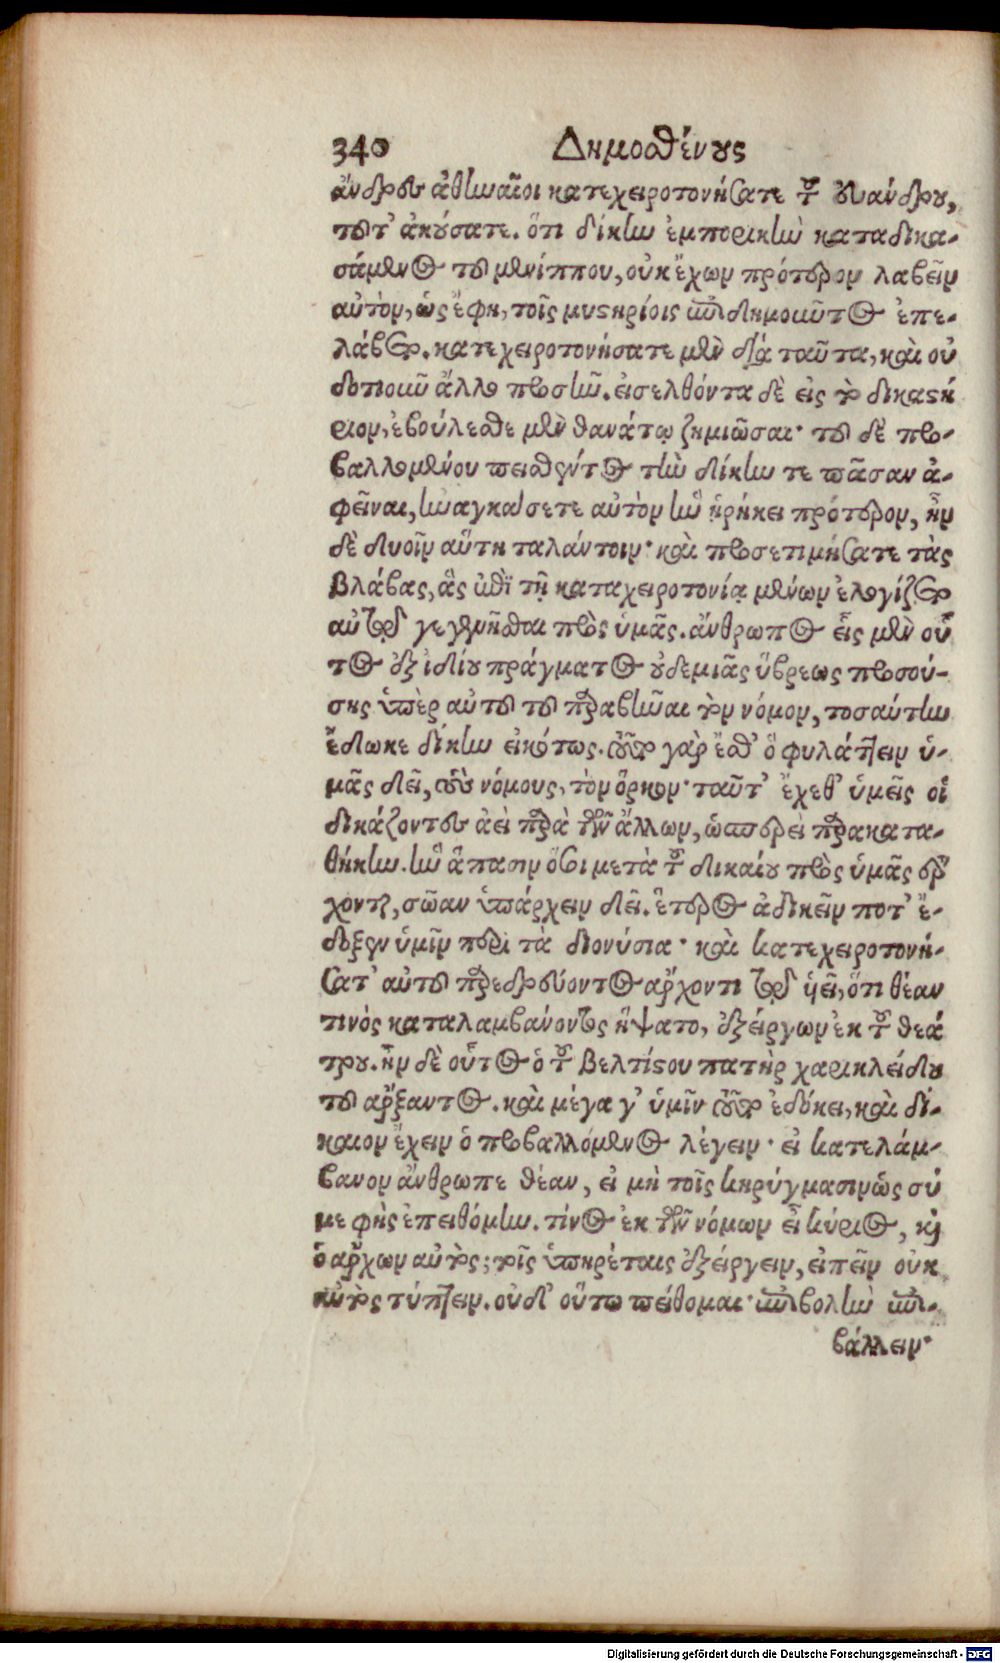 340 Δημοσθένους
ἄνδρες ἀθηναῖοι κατεχειροτονήσατε τοῦ εὐάνδρου,
τοῦτ' ἀκούσατε. ὅτι δίκην ἐμπορικὴν καταδικα-
σάμενος τοῦ μενίππου, οὐκ ἔχων πρότερον λαβεῖν
αὐτὸν, ὡς ἔφη, τοῖς μυστηρίοις ἐπιδημοῦντος ἐπε-
λάβετο. κατεχειροτονήσατε μὲν διὰ ταῦτα, καὶ οὐ
δοτιοιῦ ἄλλο προσῆν. εἰσελθόντα δὲ εἰς τὸ δικαστή
ριον, ἐβούλεσθε μὲν θανάτῳ ζημιῶσαι· τοῦ δὲ προ-
βαλλομένου πεισθέντος τὴν δίκην τε πᾶσαν ἀ-
φεῖναι, ἠναγκάσετε αὐτὸν ἣν ᾑρήκει πρότερον, ἦν
δὲ δυοῖν αὕτη ταλάντοιν· καὶ προσετιμήσατε τὰς
βλάβας, ἃς ἐπὶ τῇ καταχειροτονίᾳ μένων ἐλογίζετο
αὑτῷ γεγενῆσθαι πρὸς ὑμᾶς. ἄνθρωπος εἷς μὲν οὗ
τος ἐξ ἰδίου πράγματος οὐδεμιᾶς ὕβρεως προσού-
σης ὑπὲρ αὐτοῦ τοῦ παραβῆναι τὸν νόμον, τοσαύτην
ἔδωκε δίκην εἰκότως. τοῦτο γὰρ ἔσθ' ὃ φυλάττειν ὑ-
μᾶς δεῖ, τοὺς νόμους, τὸν ὅρκον· ταῦτ' ἔχεθ' ὑμεῖς οἱ
δικάζοντες ἀεὶ παρὰ τῶν ἄλλων, ὡσπερεὶ παρακατα-
θήκην. ἣν ἅπασιν ὅσοι μετὰ τοῦ δικαίου πρὸς ὑμᾶς ἔρ
χονται, σῶαν ὑπάρχειν δεῖ. ἕτερος ἀδικεῖν ποτ' ἔ-
δοξεν ὑμῖν περὶ τὰ διονύσια· καὶ κατεχειροτονή-
σατ' αὐτοῦ παρεδρεύοντος ἄρχοντι τῷ ὑεῖ, ὅτι θέαν
τινὸς καταλαμβάνοντος ἥψατο, ἐξείργων ἐκ τοῦ θεά
τρου. ἦν δὲ οὗτος ὁ τοῦ βελτίστου πατὴρ χαρικλείδου
τοῦ ἄρξαντος. καὶ μέγα γ' ὑμῖν τοῦτο ἐδόκει, καὶ δί-
καιον ἔχειν ὁ προβαλλόμενος λέγειν· εἰ κατελάμ-
βανον ἄνθρωπε θέαν, εἰ μὴ τοῖς κηρύγμασιν ὡς σύ
με φῂς ἐπειθόμην. τίνος ἐκ τῶν νόμων εἶ κύριος, καὶ
ὁ ἄρχων αὐτός; τοῖς ὑπηρέταις ἐξείργειν, εἰπεῖν οὐκ
αὐτὸς τύπτειν. οὐδ' οὕτω πείθομαι· ἐπιβολὴν ἐπι-
βάλλειν·
Digitalisierung gefördert durch die Deutsche Forschungsgemeinschaft - DFG